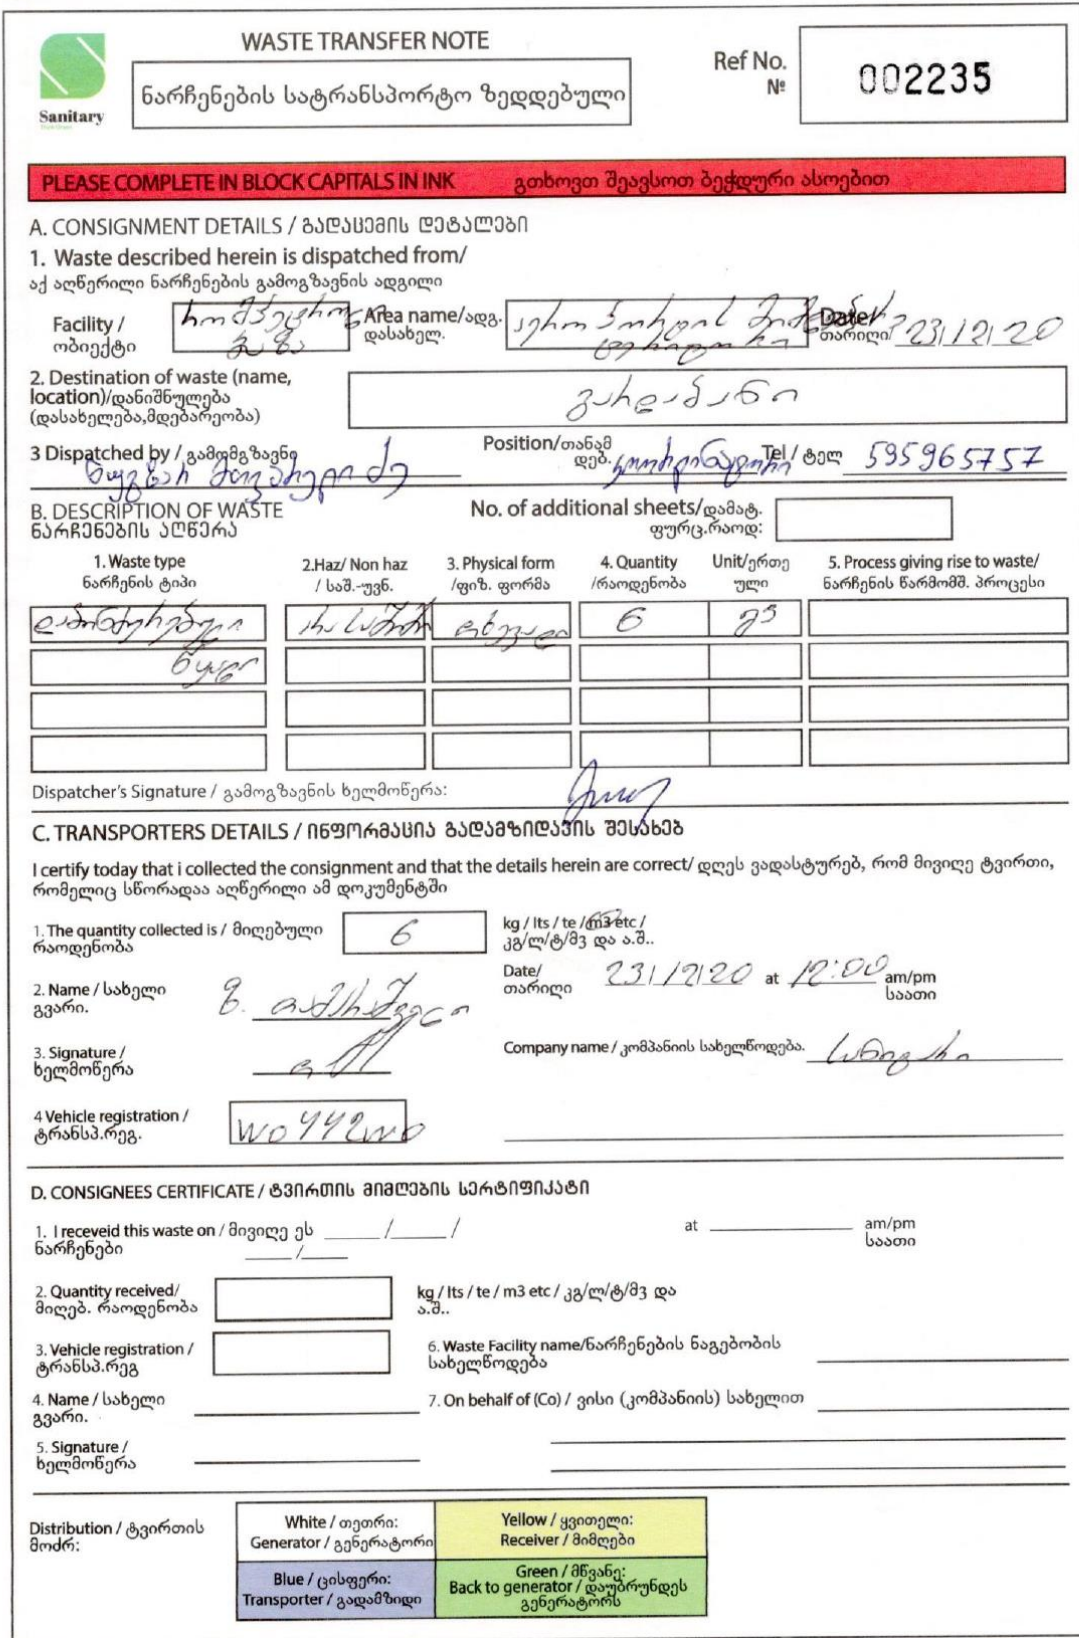 WASTE TRANSFER NOTE
ნარჩენების სატრანსპორტო ზედდებული
Ref No.
№
002235
Sanitary
PLEASE COMPLETE IN BLOCK CAPITALS IN INK გთხოვთ შეავსოთ ბეჭდური ასოებით
A. CONSIGNMENT DETAILS / გადაცემის დეტალები
1. Waste described herein is dispatched from/
აქ აღწერილი ნარჩენების გამოგზავნის ადგილი
Facility /
ობიექტი
ბაზა
Area name/ადგ.
დასახელ.
აეროპორტის
ტერიტორია
Date/
თარიღი 23/12/20
2. Destination of waste (name,
location)/დანიშნულება
(დასახელება,მდებარეობა)
გარდაბანი
3 Dispatched by / გამომგზავნი
ნუგზარ
Position/თანამ
დებ. კოორდინატორი
Tel / ტელ 595965757
B. DESCRIPTION OF WASTE
ნარჩენების აღწერა
No. of additional sheets/დამატ.
ფურც.რაოდ:
1. Waste type
ნარჩენის ტიპი
2.Haz/ Non haz
/ საშ.-უვნ.
3. Physical form
/ფიზ. ფორმა
4. Quantity
/რაოდენობა
Unit/ერთე
ული
5. Process giving rise to waste/
ნარჩენის წარმომშ. პროცესი
დაბინძურებული არასაშიში თხევადი 6 მ3
წყალი
Dispatcher's Signature / გამოგზავნის ხელმოწერა:
C. TRANSPORTERS DETAILS / ინფორმაცია გადამზიდავის შესახებ
I certify today that i collected the consignment and that the details herein are correct/ დღეს ვადასტურებ, რომ მივიღე ტვირთი,
რომელიც სწორადაა აღწერილი ამ დოკუმენტში
1. The quantity collected is / მიღებული
რაოდენობა
6
kg / lts / te / m3 etc /
კგ/ლ/ტ/მ3 და ა.შ..
2. Name / სახელი
გვარი.
ზ.
Date/
თარიღი 23/12/20 at 12:00 am/pm
საათი
3. Signature /
ხელმოწერა
Company name / კომპანიის სახელწოდება. სანიტარი
4 Vehicle registration /
ტრანსპ.რეგ.
WO442WO
D. CONSIGNEES CERTIFICATE / ტვირთის მიმღების სერტიფიკატი
1. I receveid this waste on / მივიღე ეს ____ /____ /
ნარჩენები ____ /____
at ________ am/pm
საათი
2. Quantity received/
მიღებ. რაოდენობა
kg / lts / te / m3 etc / კგ/ლ/ტ/მ3 და
ა.შ..
3. Vehicle registration /
ტრანსპ.რეგ
6. Waste Facility name/ნარჩენების ნაგებობის
სახელწოდება
4. Name / სახელი
გვარი.
7. On behalf of (Co) / ვისი (კომპანიის) სახელით
5. Signature /
ხელმოწერა
Distribution / ტვირთის
მოძრ:
White / თეთრი:
Generator / გენერატორი
Yellow / ყვითელი:
Receiver / მიმღები
Blue / ცისფერი:
Transporter / გადამზიდი
Green / მწვანე:
Back to generator / დაუბრუნდეს
გენერატორს